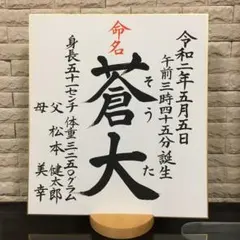 令和二年五月五日
午前三時四十五分誕生
命名
蒼大
そうた
身長五十一センチ 体重三二五〇グラム
父 松本 健太郎
母 美幸